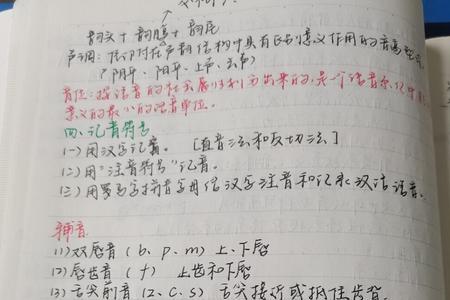 韵头+韵腹+韵尾
声调:依附在声韵结构中具有区别意义作用的音高型式
(阴平、阳平、上声、去声)
音位:按语音的社会属性划分出来的,是一个语音系统中
意义的最小的语音单位。
四、记音符号
(一)用汉字记音。 [直音法和反切法]
(二)用“注音符号”记音。
(三)用罗马字拼音字母给汉字注音和记录汉语语音。
辅音
(1)双唇音(b、p、m)上、下唇
(2)唇齿音(f) 上齿和下唇
(3)舌尖前音(z、c、s)舌尖接近或抵住齿背